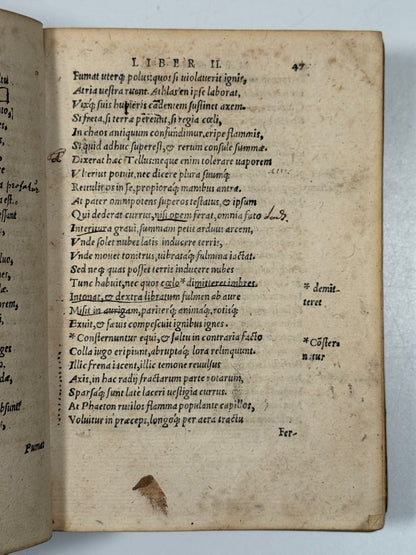 LIBER II. 47
Fumat uterq; polus: quos si violaverit ignis,
Atria vestra ruent. Athlas en ipse laborat,
Vixq; suis humeris cādentem sustinet axem.
Si freta, si terræ pereunt, si regia cœli,
In chaos antiquum confundimur, eripe flammis,
Si quid adhuc superest, & rerum consule summæ.
Dixerat hæc Tellus: neque enim tolerare vaporem
Vlterius potuit, nec dicere plura: suumq;
Retulit os in se, propioraq; manibus antra.
At pater omnipotens superos testatus, & ipsum
Qui dederat currus, nisi opem ferat, omnia fato
Interitura gravi, summam petit arduus arcem,
Vnde solet nubes latis inducere terris,
Vnde movet tonitrus, vibrataq; fulmina iactat.
Sed neq; quas posset terris inducere nubes
Tunc habuit, nec quos cœlo * dimitteret imbres.
* demit-
teret
Intonat, & dextra libratum fulmen ab aure
Misit in aurigam, pariterq; animaq, rotisq;
Exuit, & sævis compescuit ignibus ignes.
* Consternuntur equi, & saltu in contraria facto
* Cōster-
natur
Colla iugo eripiunt, abruptaq; lora relinquunt.
Illic frena iacent, illic temone revulsus
Axis, in hac radij fractarum parte rotarum,
Sparsaq; sunt late laceri vestigia currus.
At Phaeton rutilos flamma populante capillos,
Volvitur in præceps, longoq; per aera tractu
Fer-
Fumat